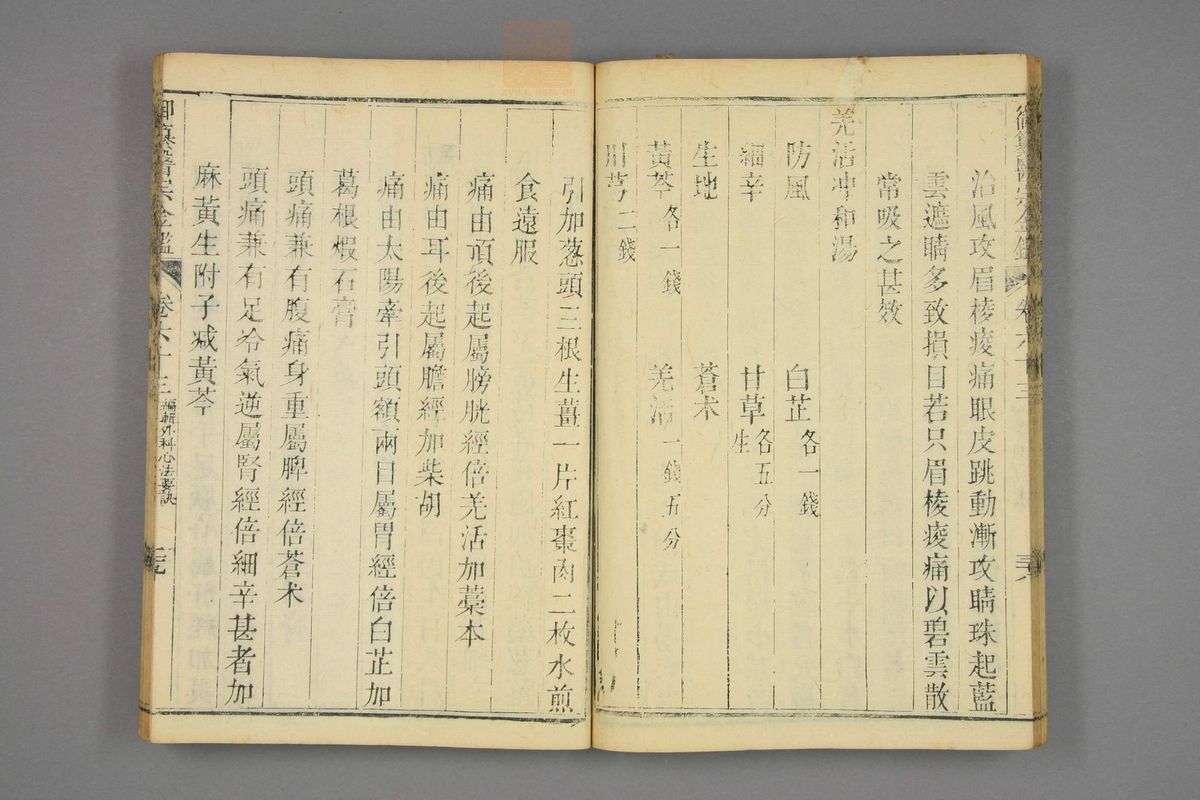 御纂醫宗金鑑 卷六十三
治風攻眉棱痠痛眼皮跳動漸攻睛珠起藍
雲遮睛多致損目若只眉棱痠痛以碧雲散
常吸之甚效
羌活冲和湯
防風 白芷各一錢
細辛 甘草生各五分
生地 蒼朮
黃芩各一錢 羌活一錢五分
川芎二錢
引加葱頭三根生薑一片紅棗肉二枚水煎
食遠服
痛由頂後起屬膀胱經倍羌活加藁本
痛由耳後起屬膽經加柴胡
痛由太陽牽引頭額兩目屬胃經倍白芷加
葛根煆石膏
頭痛兼有腹痛身重屬脾經倍蒼朮
頭痛兼有足冷氣逆屬腎經倍細辛甚者加
麻黃生附子减黃芩
御纂醫宗金鑑 卷六十三 編輯外科心法要訣